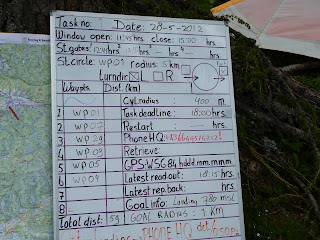 Task no: Date: 28-5-2012
Window open: 11:45 hrs close: 15:00 hrs.
St.gates: 12:45 hrs hrs hrs hrs.
St.circle: WP01 radius: 5 km
turndir: L R
Waypts. Dist.(km)
Cyl.radius : 400 m.
1 WP01 Task deadline: 18:00 hrs.
2 WP02 Restart hrs.
3 WP29 Phone HQ:
4 WP03 Retrieve:
5 WP05 GPS:WSG84, hddd.mm.mmm.
6 WP04 Latest read-out: 18:15 hrs.
7 Latest rep.back: hrs.
8 Goal info: Landing 780 msl
Total dist: 59 GOAL RADIUS: 1 KM
PHONE HQ